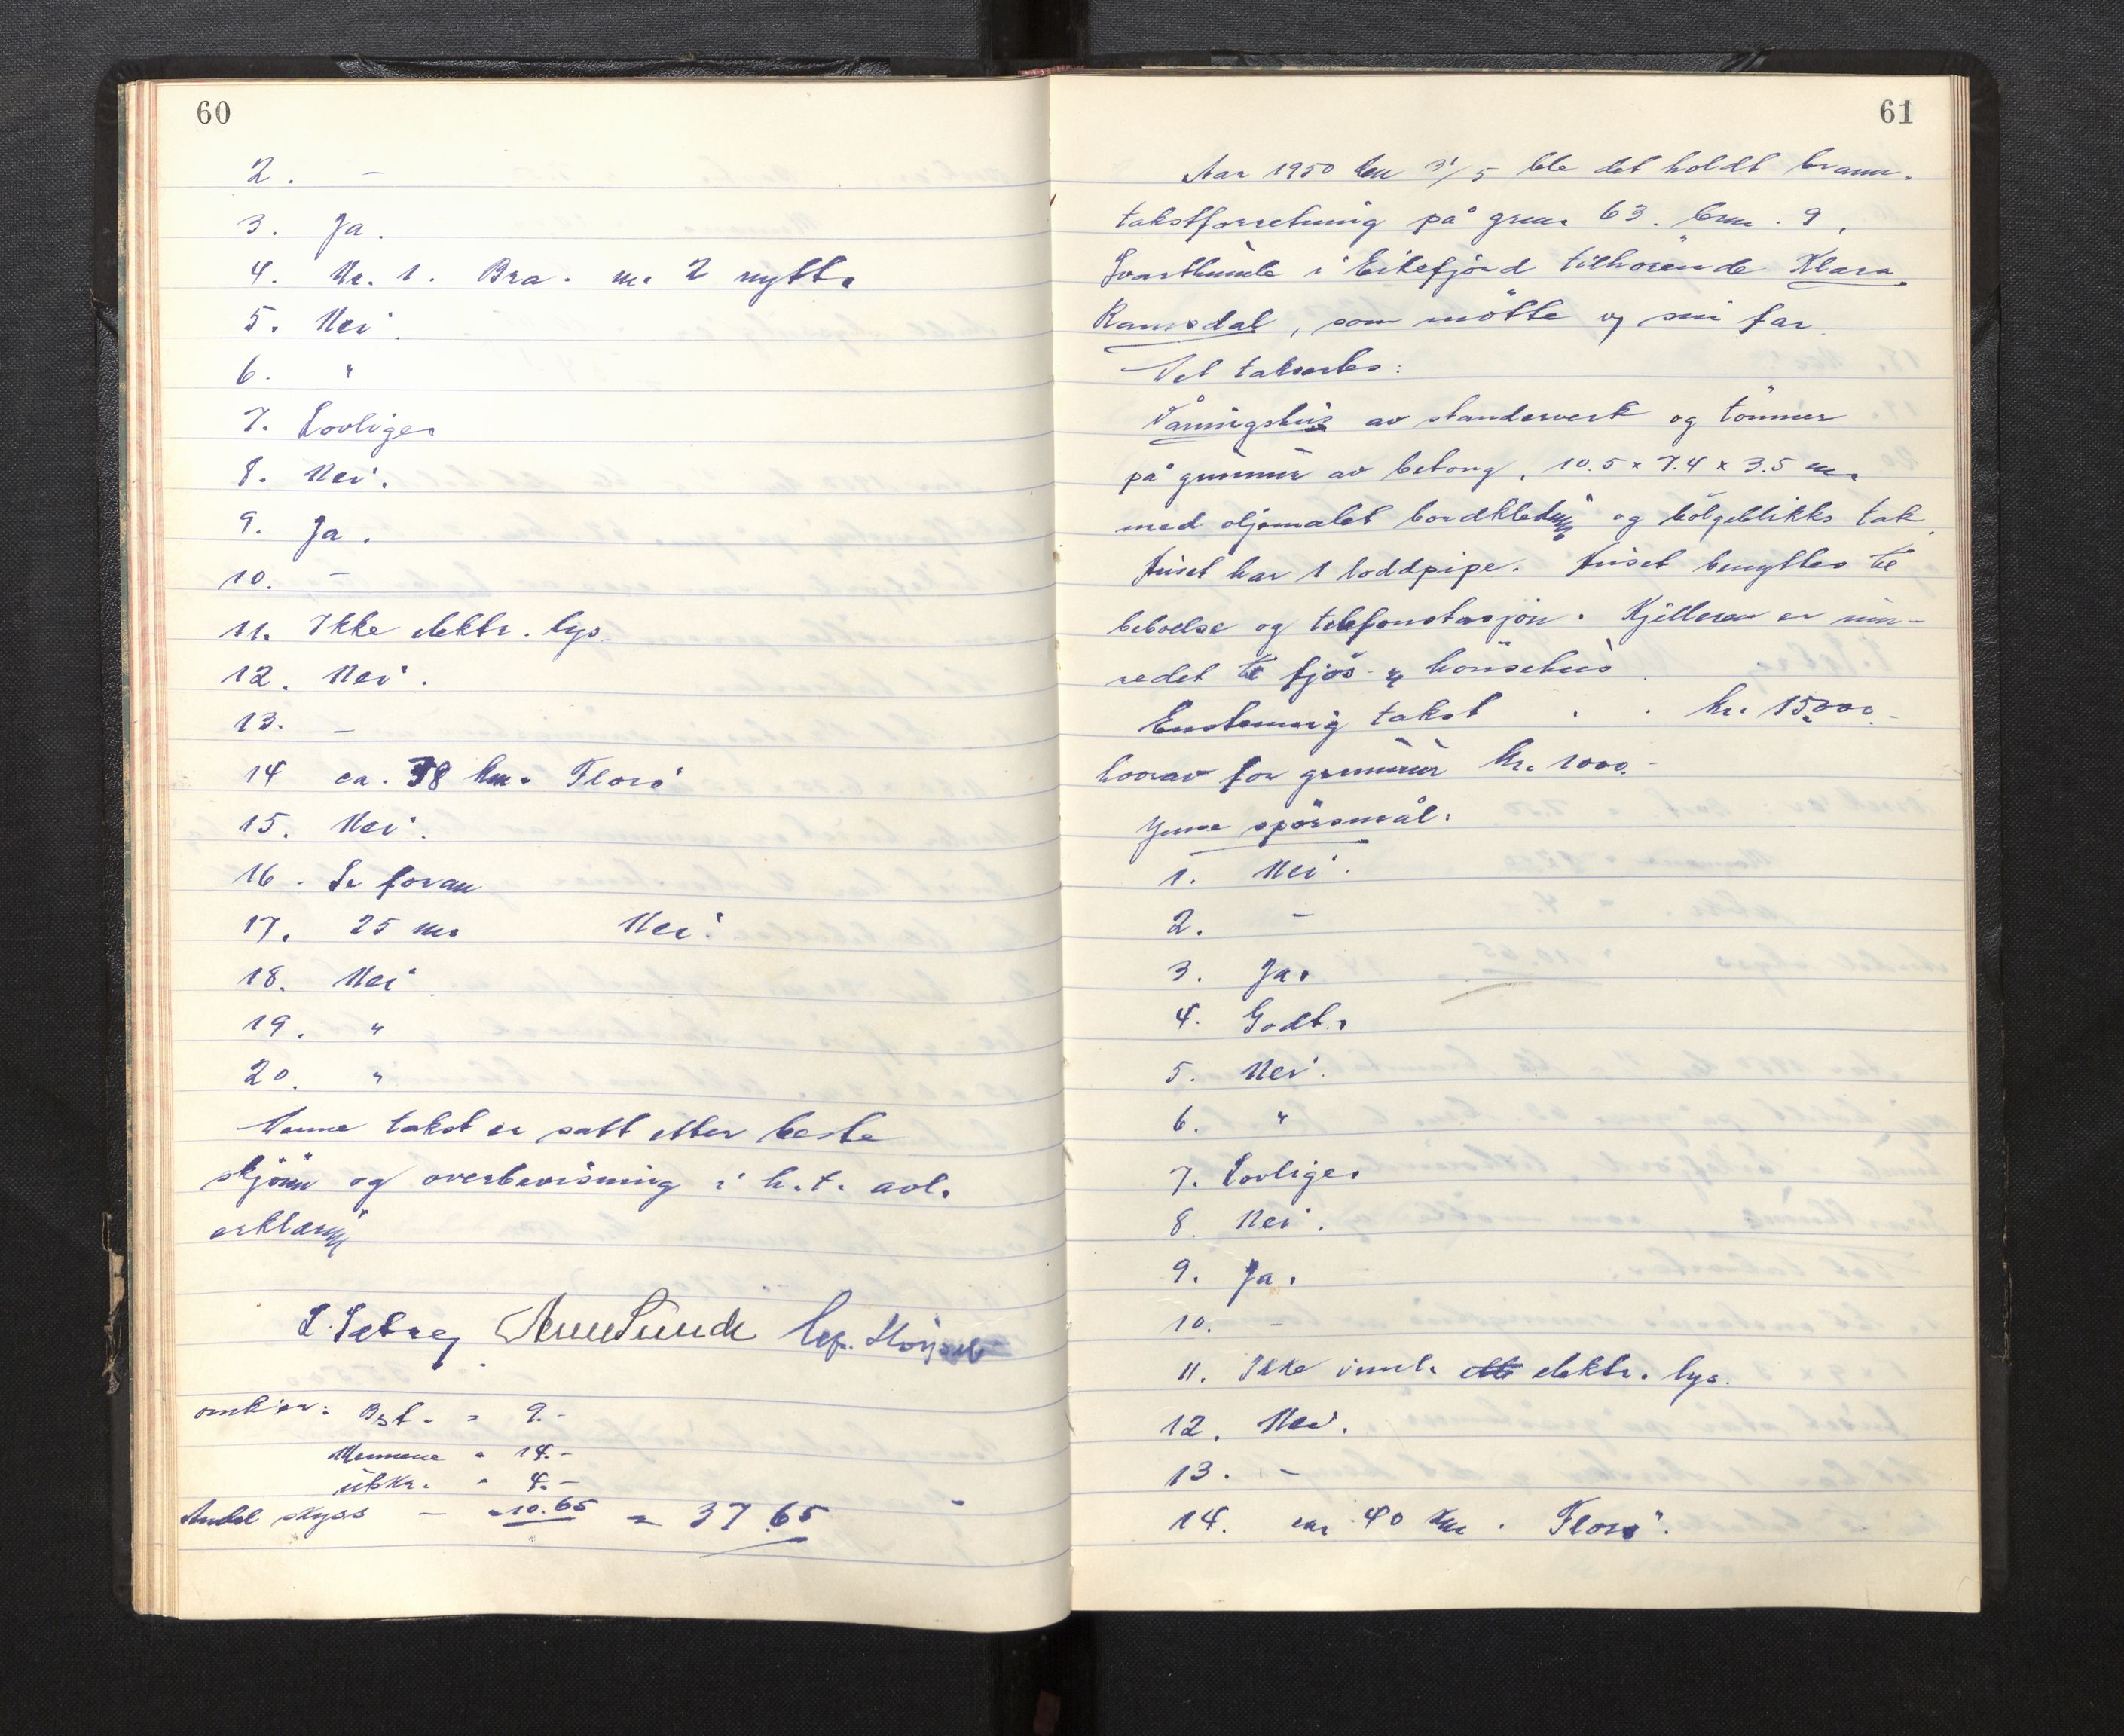 60
2. -
3. Ja.
4. Nr. 1. Bra. Nr. 2 nytt.
5. Nei.
6. "
7. Lovlige.
8. Nei.
9. Ja.
10. -
11. Ikke elektr. lys.
12. Nei.
13. -
14 ca. 38 km. Florö
15. Nei.
16. Se foran
17. 25 m. Nei.
18. Nei
19. "
20. "
Denne takst er satt etter beste
skjönn og overbevisning i h.t. avl.
erklæring
L. Sæbrey Arne Sunde
omk'er: Bst. " 9.-
Mennene " 14.-
utskr. " 4.-
Andel skyss - " 10.65 = 37.65
61
Aar 1950 den 31/5 ble det holdt brann-
takstforretning på grnr. 63. brnr. 9,
Svarthumle i Eikefjord tilhörende Klara
Ramsdal, som mötte og sin far.
Det takseres:
Våningshus av standerverk og tömmer
på grunnmur av betong, 10.5 x 7.4 x 3.5 m.
med oljemalet bordkledning og bölgeblikks tak.
Huset har 1 loddpipe. Huset benyttes til
beboelse og telefonstasjon. Kjelleren er inn-
redet til fjös og hönsehus.
Enstemmig takst . . kr. 15.000.-
hvorav for grunnmur kr. 1000.-
Jmne spörsmål.
1. Nei.
2. -
3. Ja.
4. Godt.
5. Nei.
6. "
7. Lovlige.
8. Nei.
9. Ja.
10. -
11. Ikke innl. elektr. lys.
12. Nei.
13. -
14. ca. 40 km. Florö.